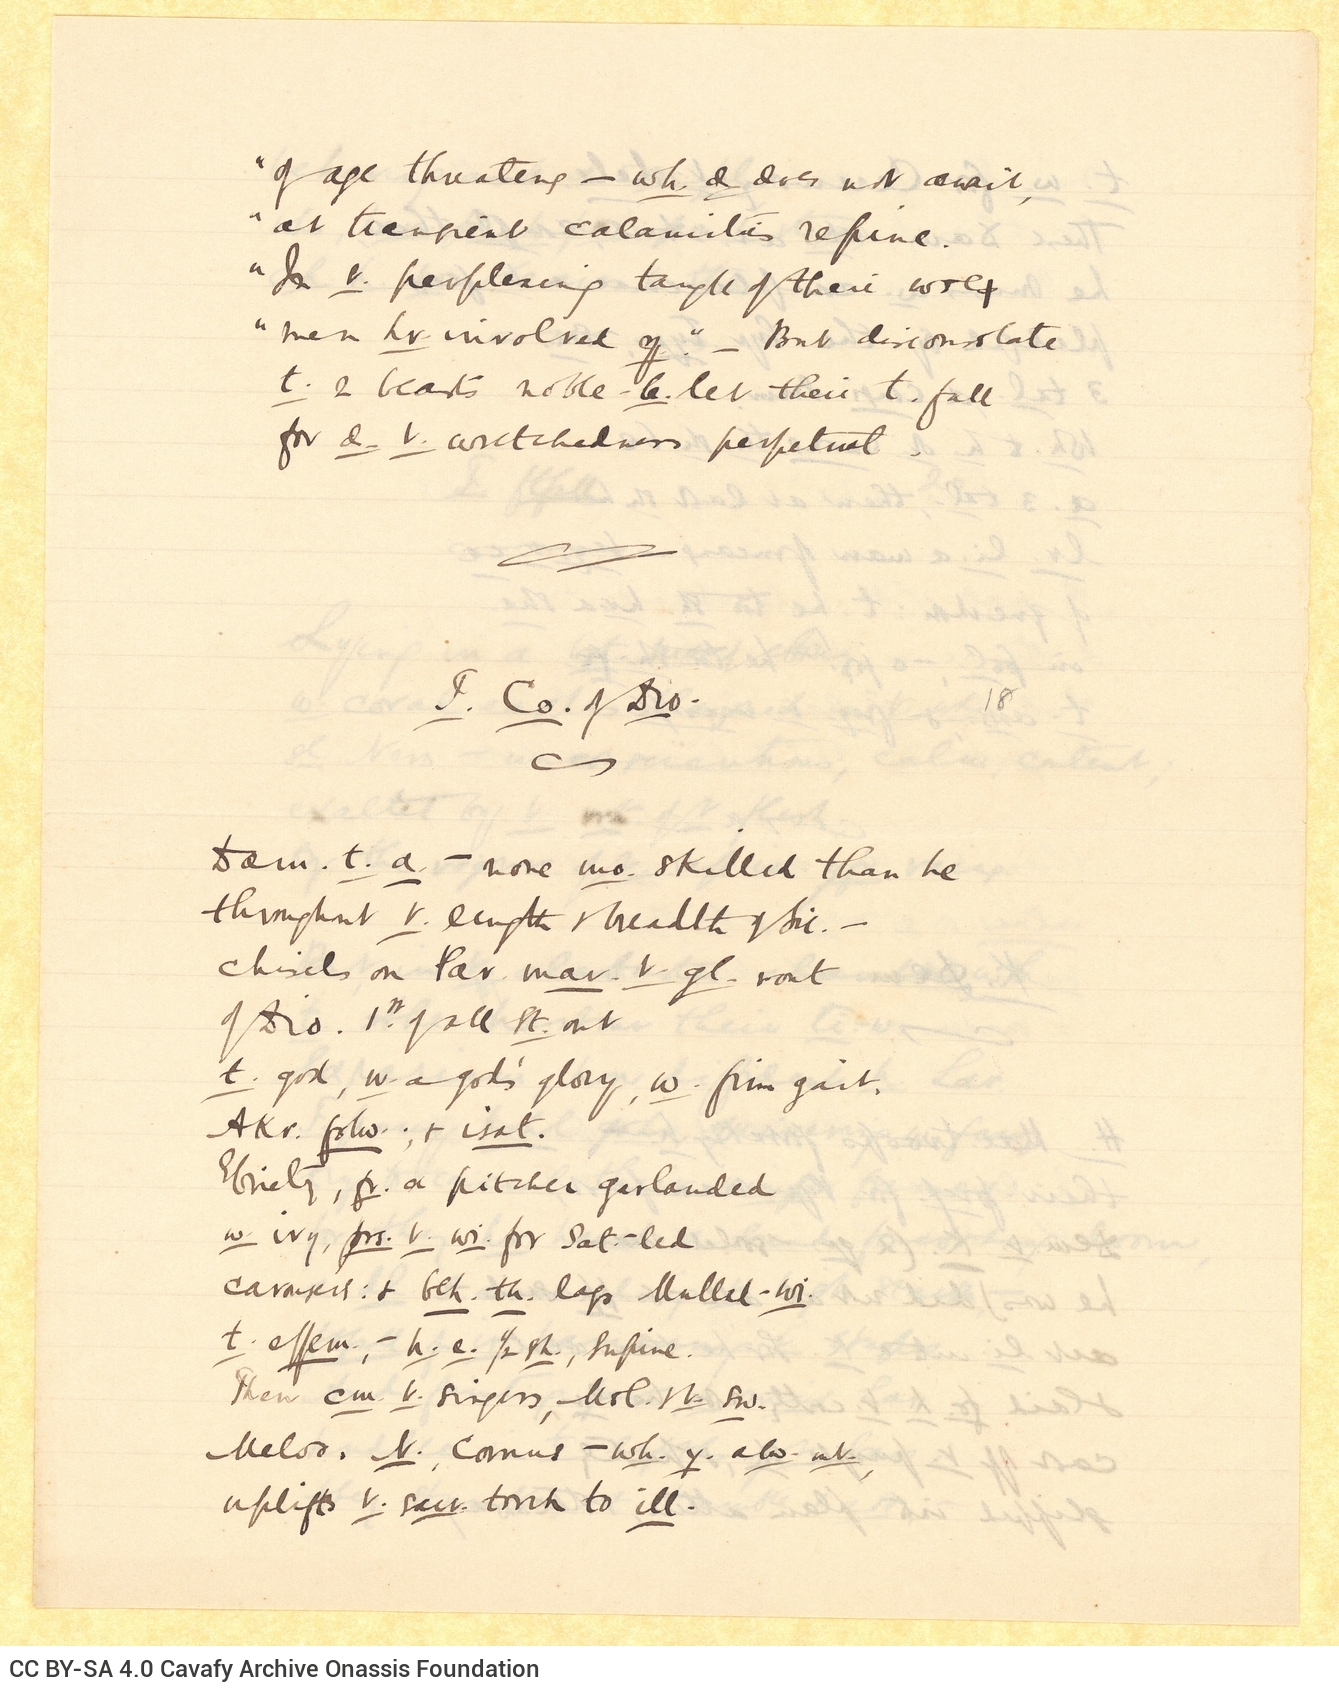 "of age threatens – wh. d. does not await,
"at transient calamities repine.
"In t. perplexing tangle of their woes
"men hv involved y." – But disconsolate
t. 2 beasts noble-b. let their t. fall
for d. t. wretchedness perpetual.
T. Co. of Dio. 18
Dam. t. a. – none mo. skilled than he
throughout t. length & breadth of Sic. –
chisels on Par. mar. t. gl. rout
of Dio. 1st of all st. out
t. god, w. a god's glory, w. firm gait.
Akr. folw.; & isat.
Ebriety, fr. a pitcher garlanded
w. ivy, prs. t. wi. for Sat.-led
carousers: & beh. th. lags Mulled-wi.
t. effem., – h. e. ½ sh., supine.
Then cm. t. singers, Mol. & t. sw.
Melod. N. Comus – wh. y. alw. nt.,
uplifts t. sacr. torch to ill.
CC BY-SA 4.0 Cavafy Archive Onassis Foundation